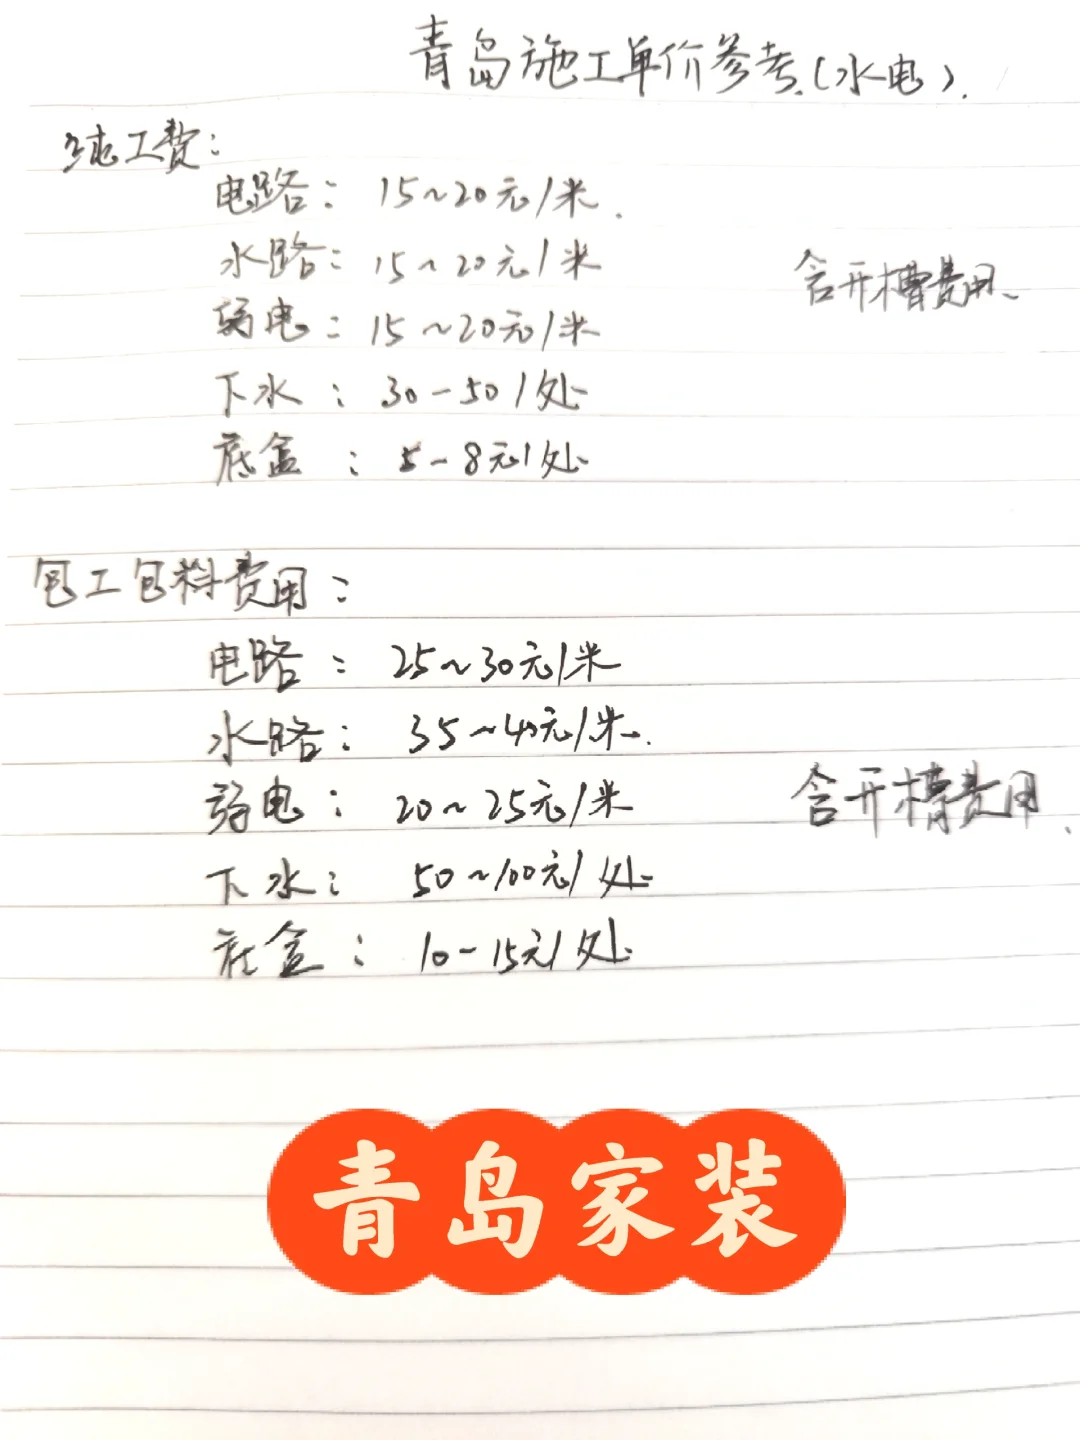 青岛施工单价参考.(水电).
纯工费:
电路: 15~20元/米.
水路: 15~20元/米
含开槽费用、
弱电: 15~20元/米
下水: 30-50/处
底盒: 5-8元/处
包工包料费用:
电路: 25~30元/米
水路: 35~40元/米.
弱电: 20~25元/米
含开槽费用.
下水: 50~100元/处
底盒: 10-15元/处
青岛家装